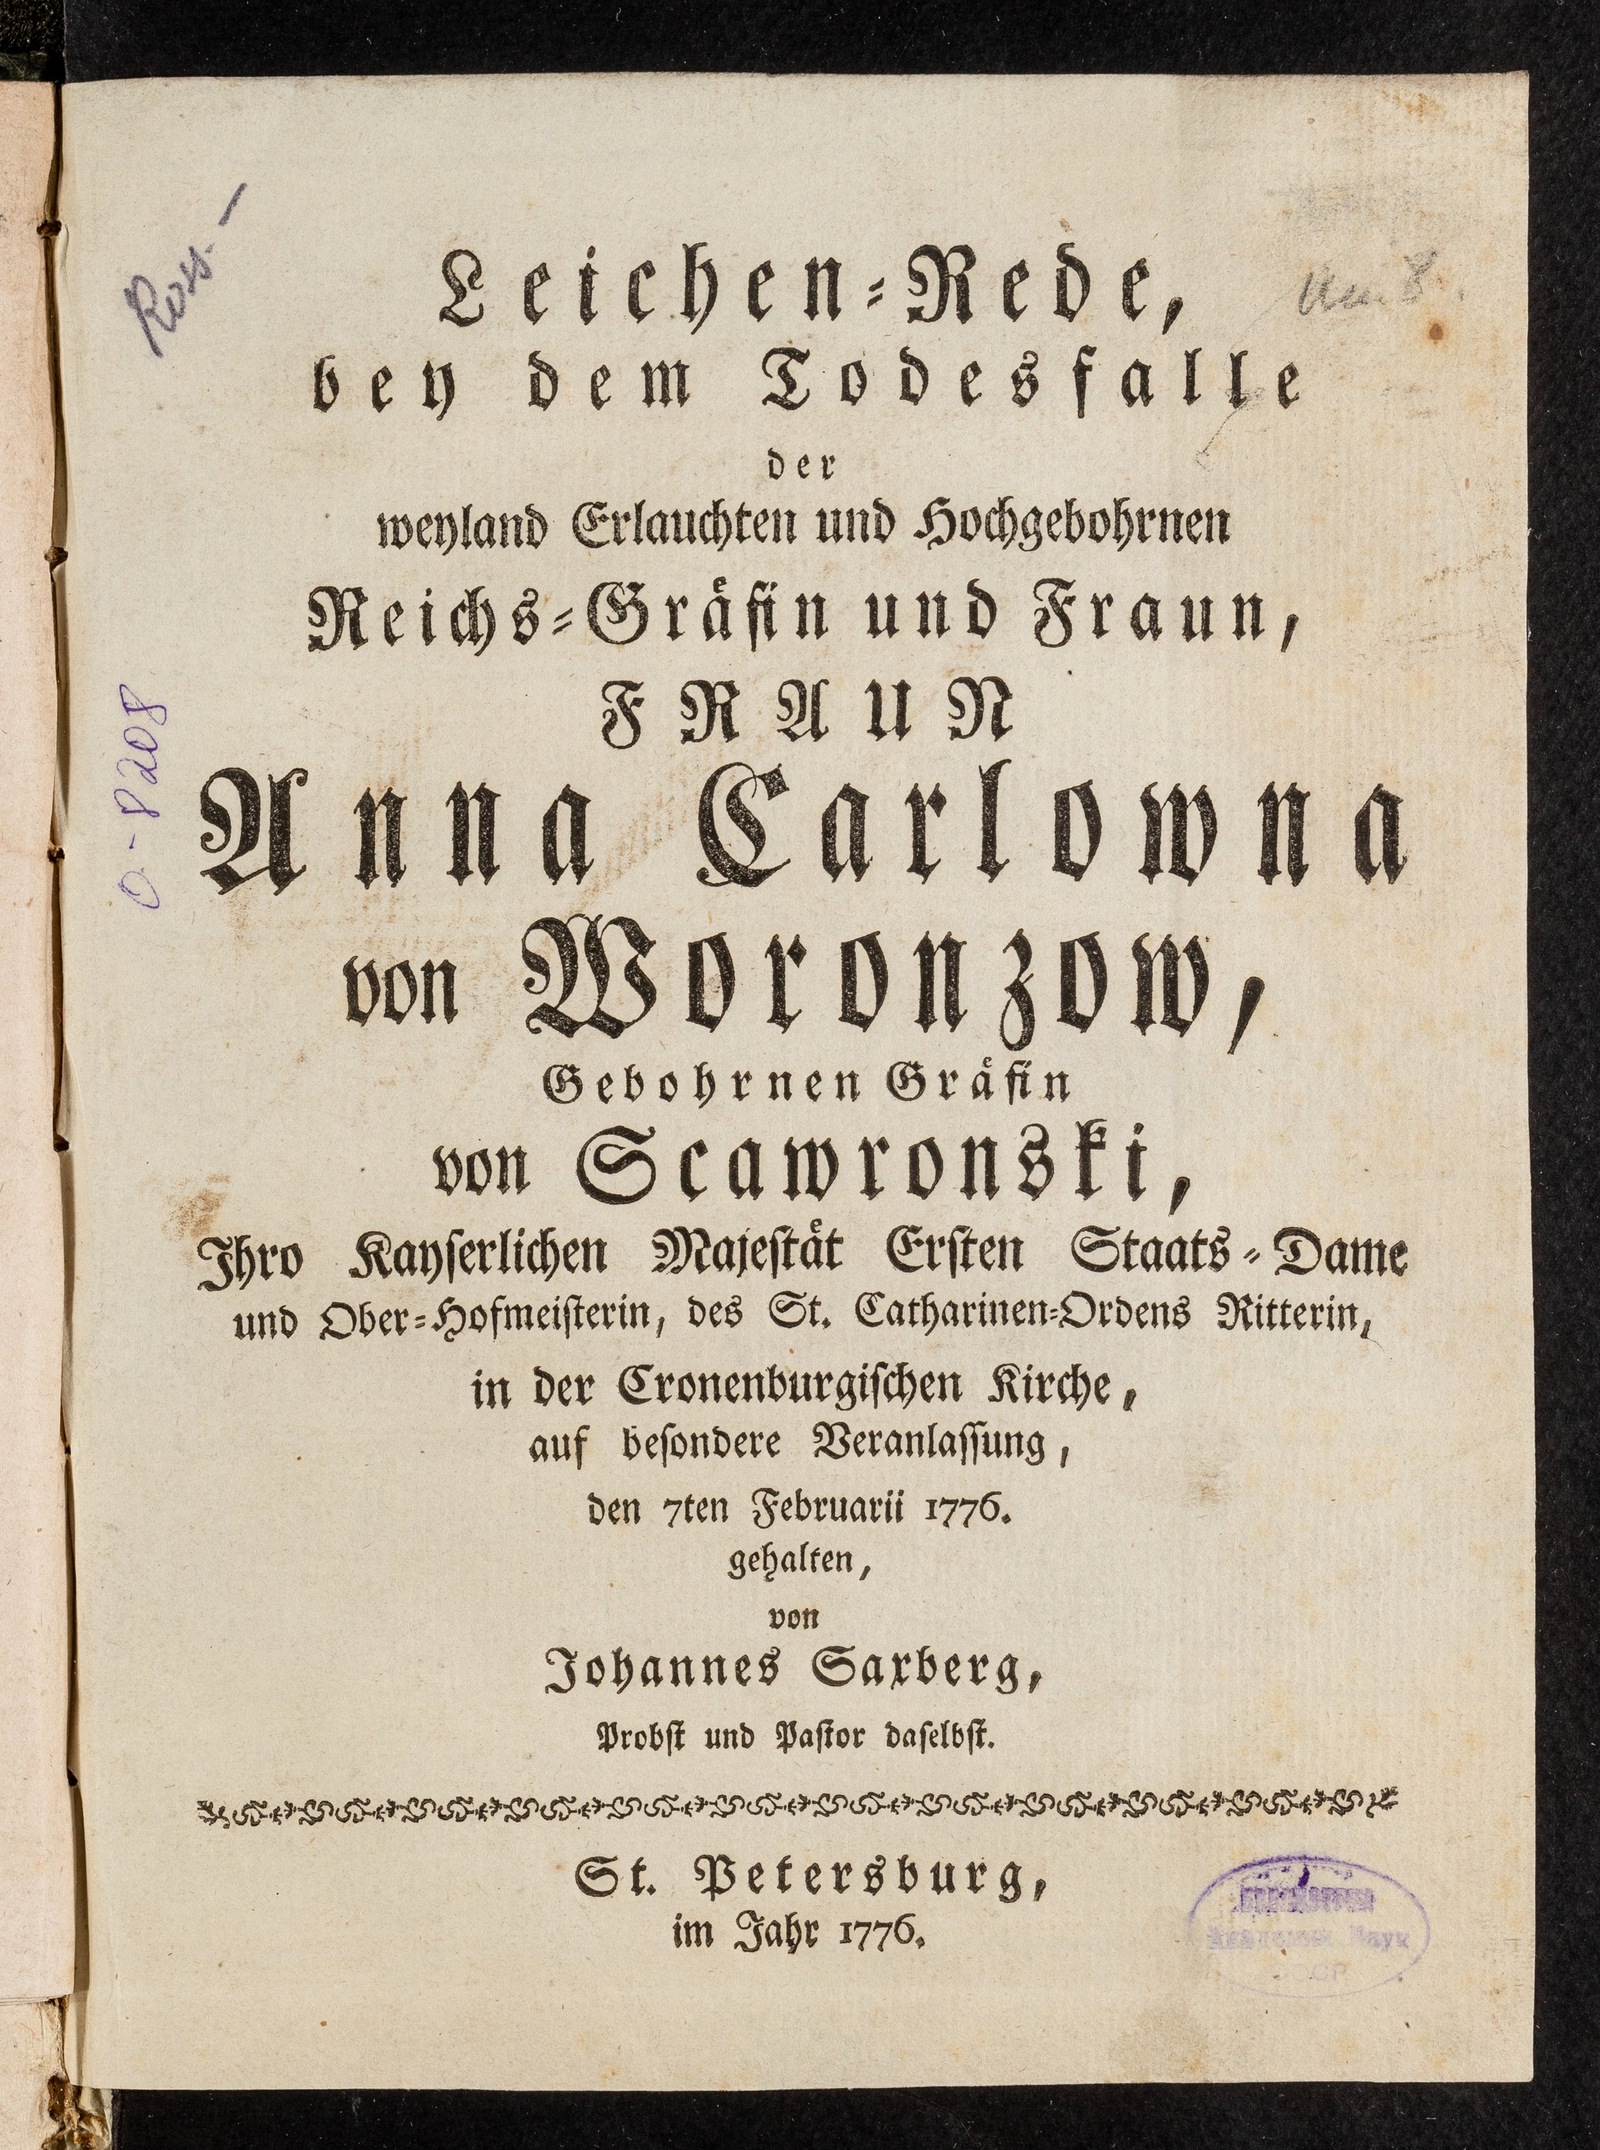 Ross. –
Leichen-Rede,
bey dem Todesfalle
der
weyland Erlauchten und Hochgebohrnen
Reichs-Gräfin und Fraun,
FRAUN
Anna Carlowna
von Woronzow,
Gebohrnen Gräfin
von Scawronski,
Ihro Kayserlichen Majestät Ersten Staats-Dame
und Ober-Hofmeisterin, des St. Catharinen-Ordens Ritterin,
in der Cronenburgischen Kirche,
auf besondere Veranlassung,
den 7ten Februarii 1776.
gehalten,
von
Johannes Saxberg,
Probst und Pastor daselbst.
St. Petersburg,
im Jahr 1776.
0-8208